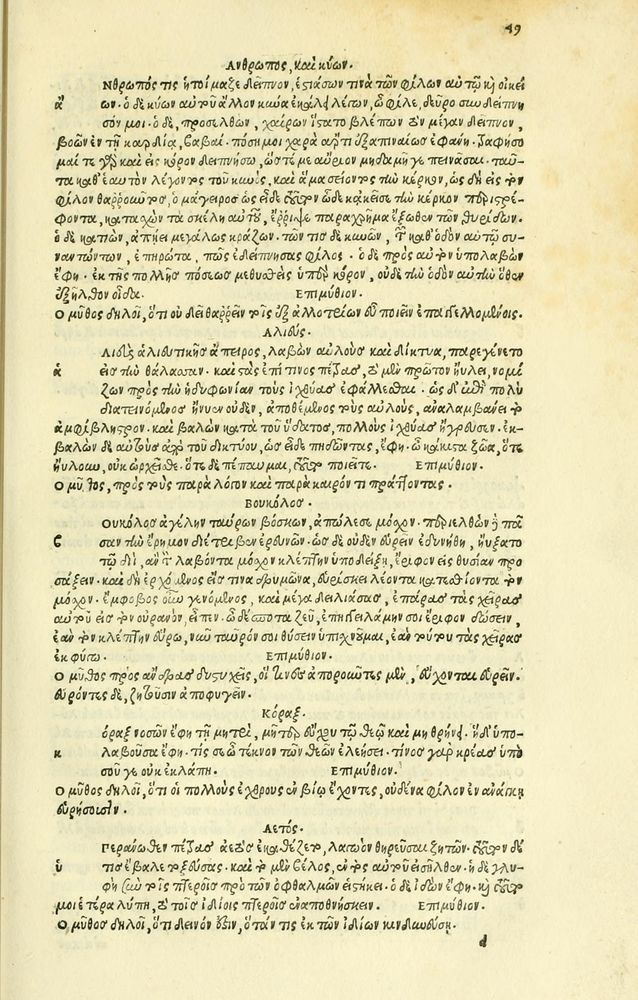 49
Ανθρωπος, καὶ κύων.
Νθρωπός τις ἡτοίμαζε δεῖπνον, ἑστιάσων τινὰ τῶν φίλων αὐτῷ κὴ οἰκεί
ἀ ων. ὁ δὲ κύων αὐτοῦ ἄλλον κύνα ἐκάλει λέγων, ὦ φίλε, δεῦρο συνδείπνη
σόν μοι. ὁ δὲ, προσελθὼν, χαίρων ἵστατο βλέπων τὸν μέγαν δεῖπνον,
βοῶν ἐν τῇ καρδίᾳ, βαβαί. πόση μοι χαρὰ ἄρτι ἐξαπιναίως ἐφάνη. τραφήσο
μαί τε γὸ καὶ εἰς κόρον δειπνήσω, ὥστέ με αὔριον μηδαμῇ γε πεινάσαι. ταῦ-
τα καθ' ἑαυτὸν λέγοντος τοῦ κυνὸς, καὶ ἅμα σείοντος τὴν κέρκον, ὡς δὴ εἰς τὸν
φίλον θαρροῦντος, ὁ μάγειρος ὡς εἶδε τοῦτον ὧδε κἀκεῖσε τὴν κέρκον περιστρέ-
φοντα, κατασχὼν τὰ σκέλη αὐτοῦ, ἔρριψε παραχρῆμα ἔξωθεν τῶν θυρίδων.
ὁ δὲ κατιὼν, ἀπῄει μεγάλως κράζων. τῶν τις δὲ κυνῶν, τῶν καθ' ὁδὸν αὐτῷ συ-
ναντώντων, ἐπηρώτα, πῶς ἐδείπνησας φίλος. ὁ δὲ πρὸς αὐτὸν ὑπολαβὼν
ἔφη. ἐκ τῆς πολλῆς πόσεως μεθυσθεὶς ὑπὲρ κόρον, οὐδὲ τὴν ὁδὸν αὐτὴν ὅθεν
ἐξῆλθον οἶδα. Επιμύθιον.
Ο μῦθος δηλοῖ, ὅτι οὐ δεῖ θαρρεῖν τοῖς ἐξ ἀλλοτρίων εὖ ποιεῖν ἐπαγγελλομένοις.
Αλιεύς.
Λιεὺς ἁλιευτικῆς ἄπειρος, λαβὼν αὐλοὺς καὶ δίκτυα, παρεγένετο
ἁ εἰς τὴν θάλασσαν. καὶ στὰς ἐπί τινος πέτρας, τὸ μὲν πρῶτον ηὔλει, νομί
ζων πρὸς τὴν ἡδυφωνίαν τοὺς ἰχθύας ἐφάλλεσθαι. ὡς δ' ἐπὶ πολὺ
διατεινόμενος ἤνυεν οὐδὲν, ἀποθέμενος τοὺς αὐλοὺς, ἀναλαμβάνει τὸ
ἀμφίβληστρον. καὶ βαλὼν κατὰ τοῦ ὕδατος, πολλοὺς ἰχθύας ἤγρευσεν. ἐκ-
βαλὼν δὲ αὐτοὺς ἀπὸ τοῦ δικτύου, ὡς εἶδε πηδῶντας, ἔφη. ὦ κάκιστα ζῶα, ὅτε
ηὔλουν, οὐκ ὠρχεῖσθε. ὅτε δὲ πέπαυμαι, τοῦτο ποιεῖτε. Επιμύθιον.
Ο μῦθος, πρὸς τοὺς παρὰ λόγον καὶ παρὰ καιρόν τι πράττοντας.
Βουκόλος.
Ουκόλος ἀγέλην ταύρων βόσκων, ἀπώλεσε μόσχον. περιελθὼν δὲ πᾶ
β σαν τὴν ἔρημον διέτριβεν ἐρευνῶν. ὡς δὲ οὐδὲν εὑρεῖν ἐδυνήθη, ηὔξατο
τῷ διὶ, ἂν τὸν λαβόντα μόσχον κλέπτην ὑποδείξῃ, ἔριφον εἰς θυσίαν προ
σάξειν. καὶ δὴ ἐρχόμενος εἴς τινα δρυμῶνα, εὑρίσκει λέοντα κατεσθίοντα τὸν
μόσχον. ἔμφοβος οὖν γενόμενος, καὶ μέγα δειλιάσας, ἐπάρας τὰς χεῖρας
αὐτοῦ εἰς τὸν οὐρανὸν, εἶπεν. ὦ δέσποτα ζεῦ, ἐπηγγειλάμην σοι ἔριφον δώσειν,
ἐὰν τὸν κλέπτην εὕρω, νῦν ταῦρόν σοι θύσειν ὑπισχνοῦμαι, ἐὰν τούτου τὰς χεῖρας
ἐκφύγω. Επιμύθιον.
Ο μῦθος πρὸς ἄνδρας δυστυχεῖς, οἵτινες ἀποροῦντες μὲν, εὔχονται εὑρεῖν.
εὑρόντες δὲ, ζητοῦσιν ἀποφυγεῖν.
Κόραξ.
όραξ νοσῶν ἔφη τῇ μητρὶ, μῆτερ εὔχου τῷ θεῷ καὶ μὴ θρήνει. ἡ δ' ὑπο-
κ λαβοῦσα ἔφη. τίς σε ὦ τέκνον τῶν θεῶν ἐλεήσει. τίνος γὰρ κρέας ὑπὸ
σοῦ γε οὐκ ἐκλάπη. Επιμύθιον.
Ο μῦθος δηλοῖ, ὅτι οἱ πολλοὺς ἐχθροὺς ἐν βίῳ ἔχοντες, οὐδένα φίλον ἐν ἀνάγκῃ
εὑρήσουσιν.
Αετός.
Περάνωθεν πέτρας ἀετὸς ἐκαθέζετο, λαγωὸν θηρεῦσαι ζητῶν. τοῦτον δέ
ὑ τις ἔβαλε τοξεύσας. καὶ τὸ μὲν βέλος, ἐντὸς αὐτοῦ εἰσῆλθεν. ἡ δὲ γλυ-
φὶς σὺν τοῖς πτεροῖς πρὸ τῶν ὀφθαλμῶν εἱστήκει. ὁ δὲ ἰδὼν ἔφη. κὴ τοῦτό
μοι ἑτέρα λύπη, τὸ τοῖς ἰδίοις πτεροῖς ἐναποθνήσκειν. Επιμύθιον.
Ο μῦθος δηλοῖ, ὅτι δεινόν ἐστιν, ὅταν τις ἐκ τῶν ἰδίων κινδυνεύσῃ.
d